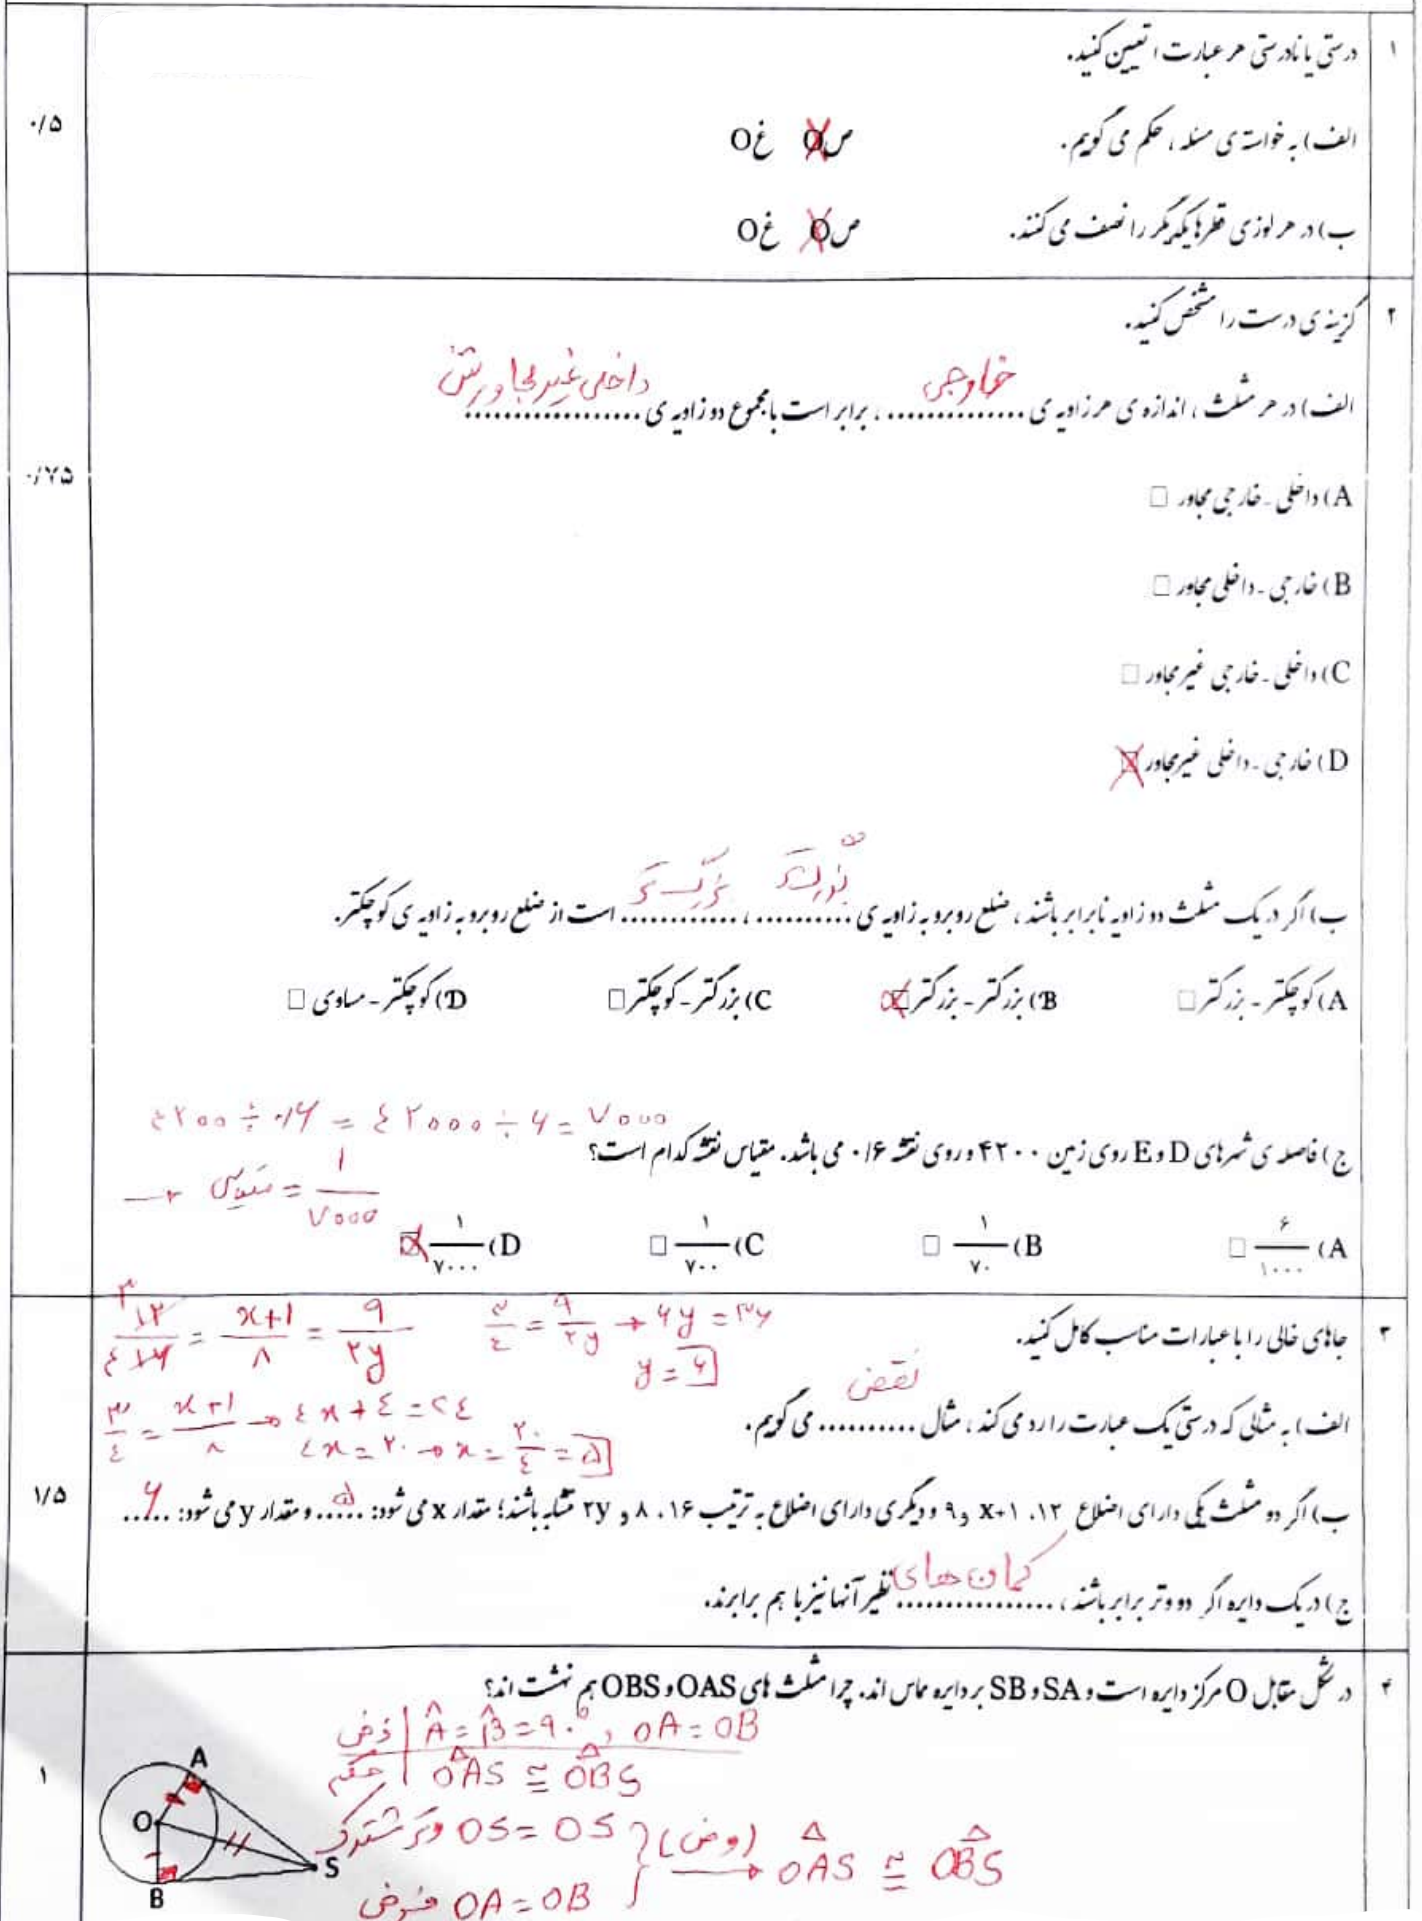 ۱ درستی یا نادرستی هر عبارت ا تعیین کنید.
۰/۵
الف) به خواسته ی مسئله ، حکم می گوییم. ص O غ O
ب) در هر لوزی قطرها یکدیگر را نصف می کنند. ص O غ O
۲ گزینه ی درست را مشخص کنید.
خارجی داخلی غیر مجاورش
الف) در هر مثلث ، اندازه ی هر زاویه ی .............. ، برابر است با مجموع دو زاویه ی .................
۰/۷۵
A) داخلی - خارجی مجاور □
B) خارجی - داخلی مجاور □
C) داخلی - خارجی غیر مجاور □
D) خارجی - داخلی غیر مجاور □
بزرگتر بزرگتر
ب) اگر در یک مثلث دو زاویه نابرابر باشند ، ضلع روبرو به زاویه ی .......... ، ............ است از ضلع روبرو به زاویه ی کوچکتر.
A) کوچکتر - بزرگتر □ B) بزرگتر - بزرگتر □ C) بزرگتر - کوچکتر □ D) کوچکتر - مساوی □
۴۲۰۰ ÷ ۰/۶ = ۴۲۰۰۰ ÷ ۶ = ۷۰۰۰
ج) فاصله ی شهرهای D و E روی زمین ۴۲۰۰ و روی نقشه ۰/۶ می باشد. مقیاس نقشه کدام است؟
→ مقیاس = ۱/۷۰۰۰
A) ۶/۱۰۰۰ □ B) ۱/۷۰ □ C) ۱/۷۰۰ □ D) ۱/۷۰۰۰ □
۱۲/۱۶ = x+۱/۸ = ۹/۲y ۳/۴ = ۹/۲y → ۶y = ۳۶
۳ جاهای خالی را با عبارات مناسب کامل کنید.
y = ۶
نقض
۳/۴ = x+۱/۸ → ۴x + ۴ = ۲۴
الف) به مثالی که درستی یک عبارت را رد می کند ، مثال .......... می گوییم.
۴x = ۲۰ → x = ۲۰/۴ = ۵
۱/۵
ب) اگر دو مثلث یکی دارای اضلاع ۱۲، x+۱ و ۹ و دیگری دارای اضلاع به ترتیب ۱۶ ، ۸ و ۲y متشابه باشند؛ مقدار x می شود: ..۵.. و مقدار y می شود: ..۶..
کمان های
ج) در یک دایره اگر دو وتر برابر باشند ، ................ نظیر آنها نیز با هم برابرند.
۴ در شکل مقابل O مرکز دایره است و SA و SB بر دایره مماس اند. چرا مثلث های OAS و OBS هم نهشت اند؟
فرض | Â = B̂ = ۹۰° , OA = OB
حکم | OAS ≅ OBS
۱
A
O
S
B
وتر مشترک OS = OS
فرض OA = OB
} (وض) → OAS ≅ OBS